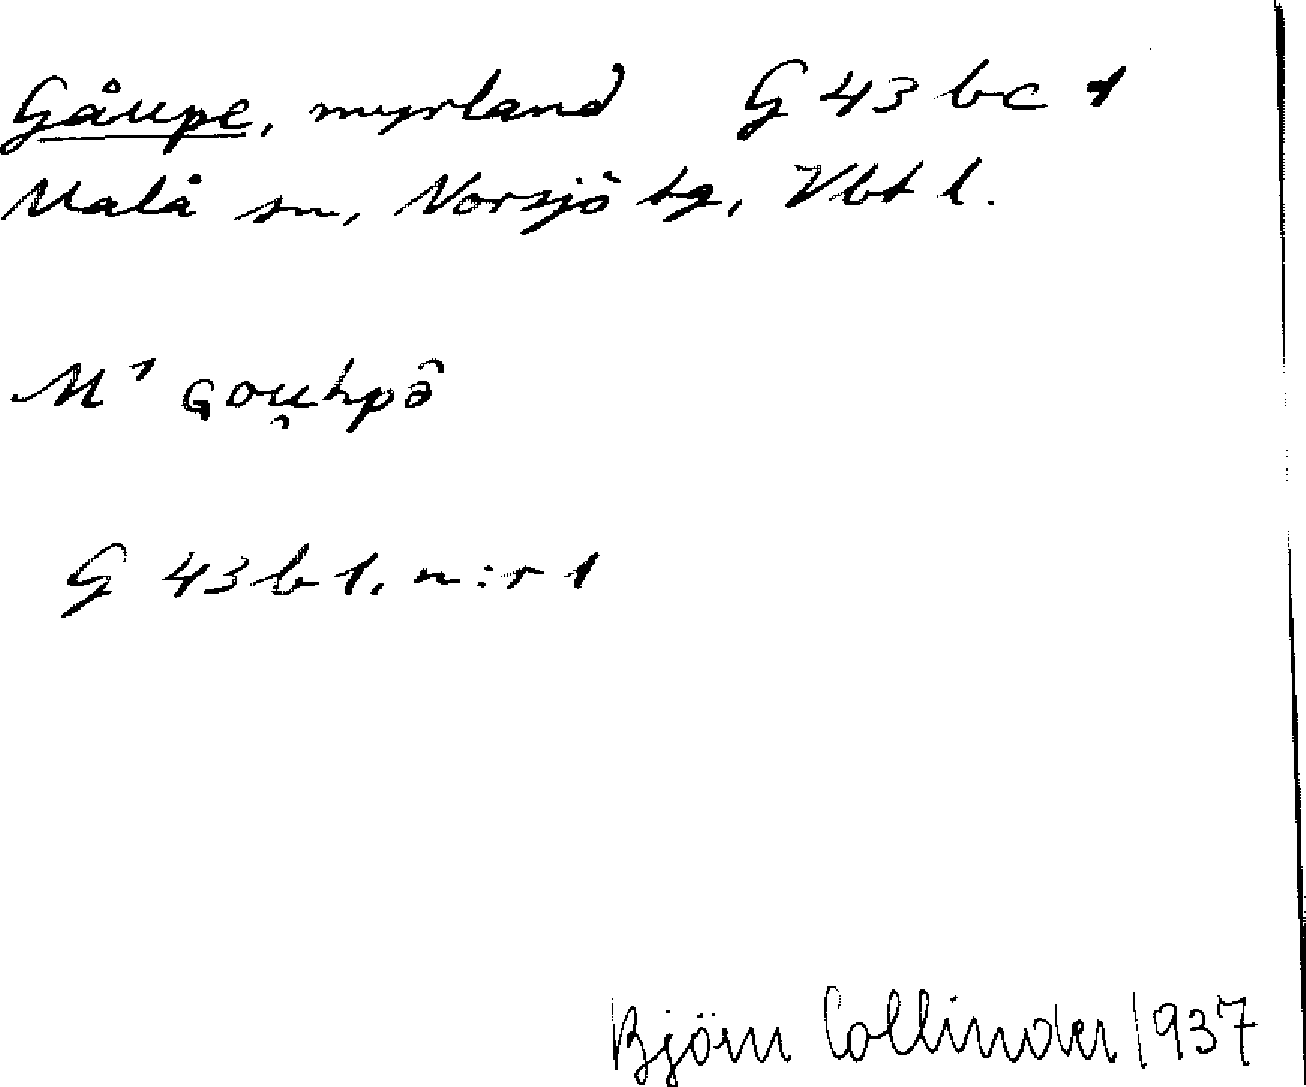 Gåupe, myrland G 43 bc 1
Malå sn, Norsjö tg, Vbt l.
M¹ ɢou̯hpə̂
G 43 b 1, n:r 1
Björn Collinder 1937